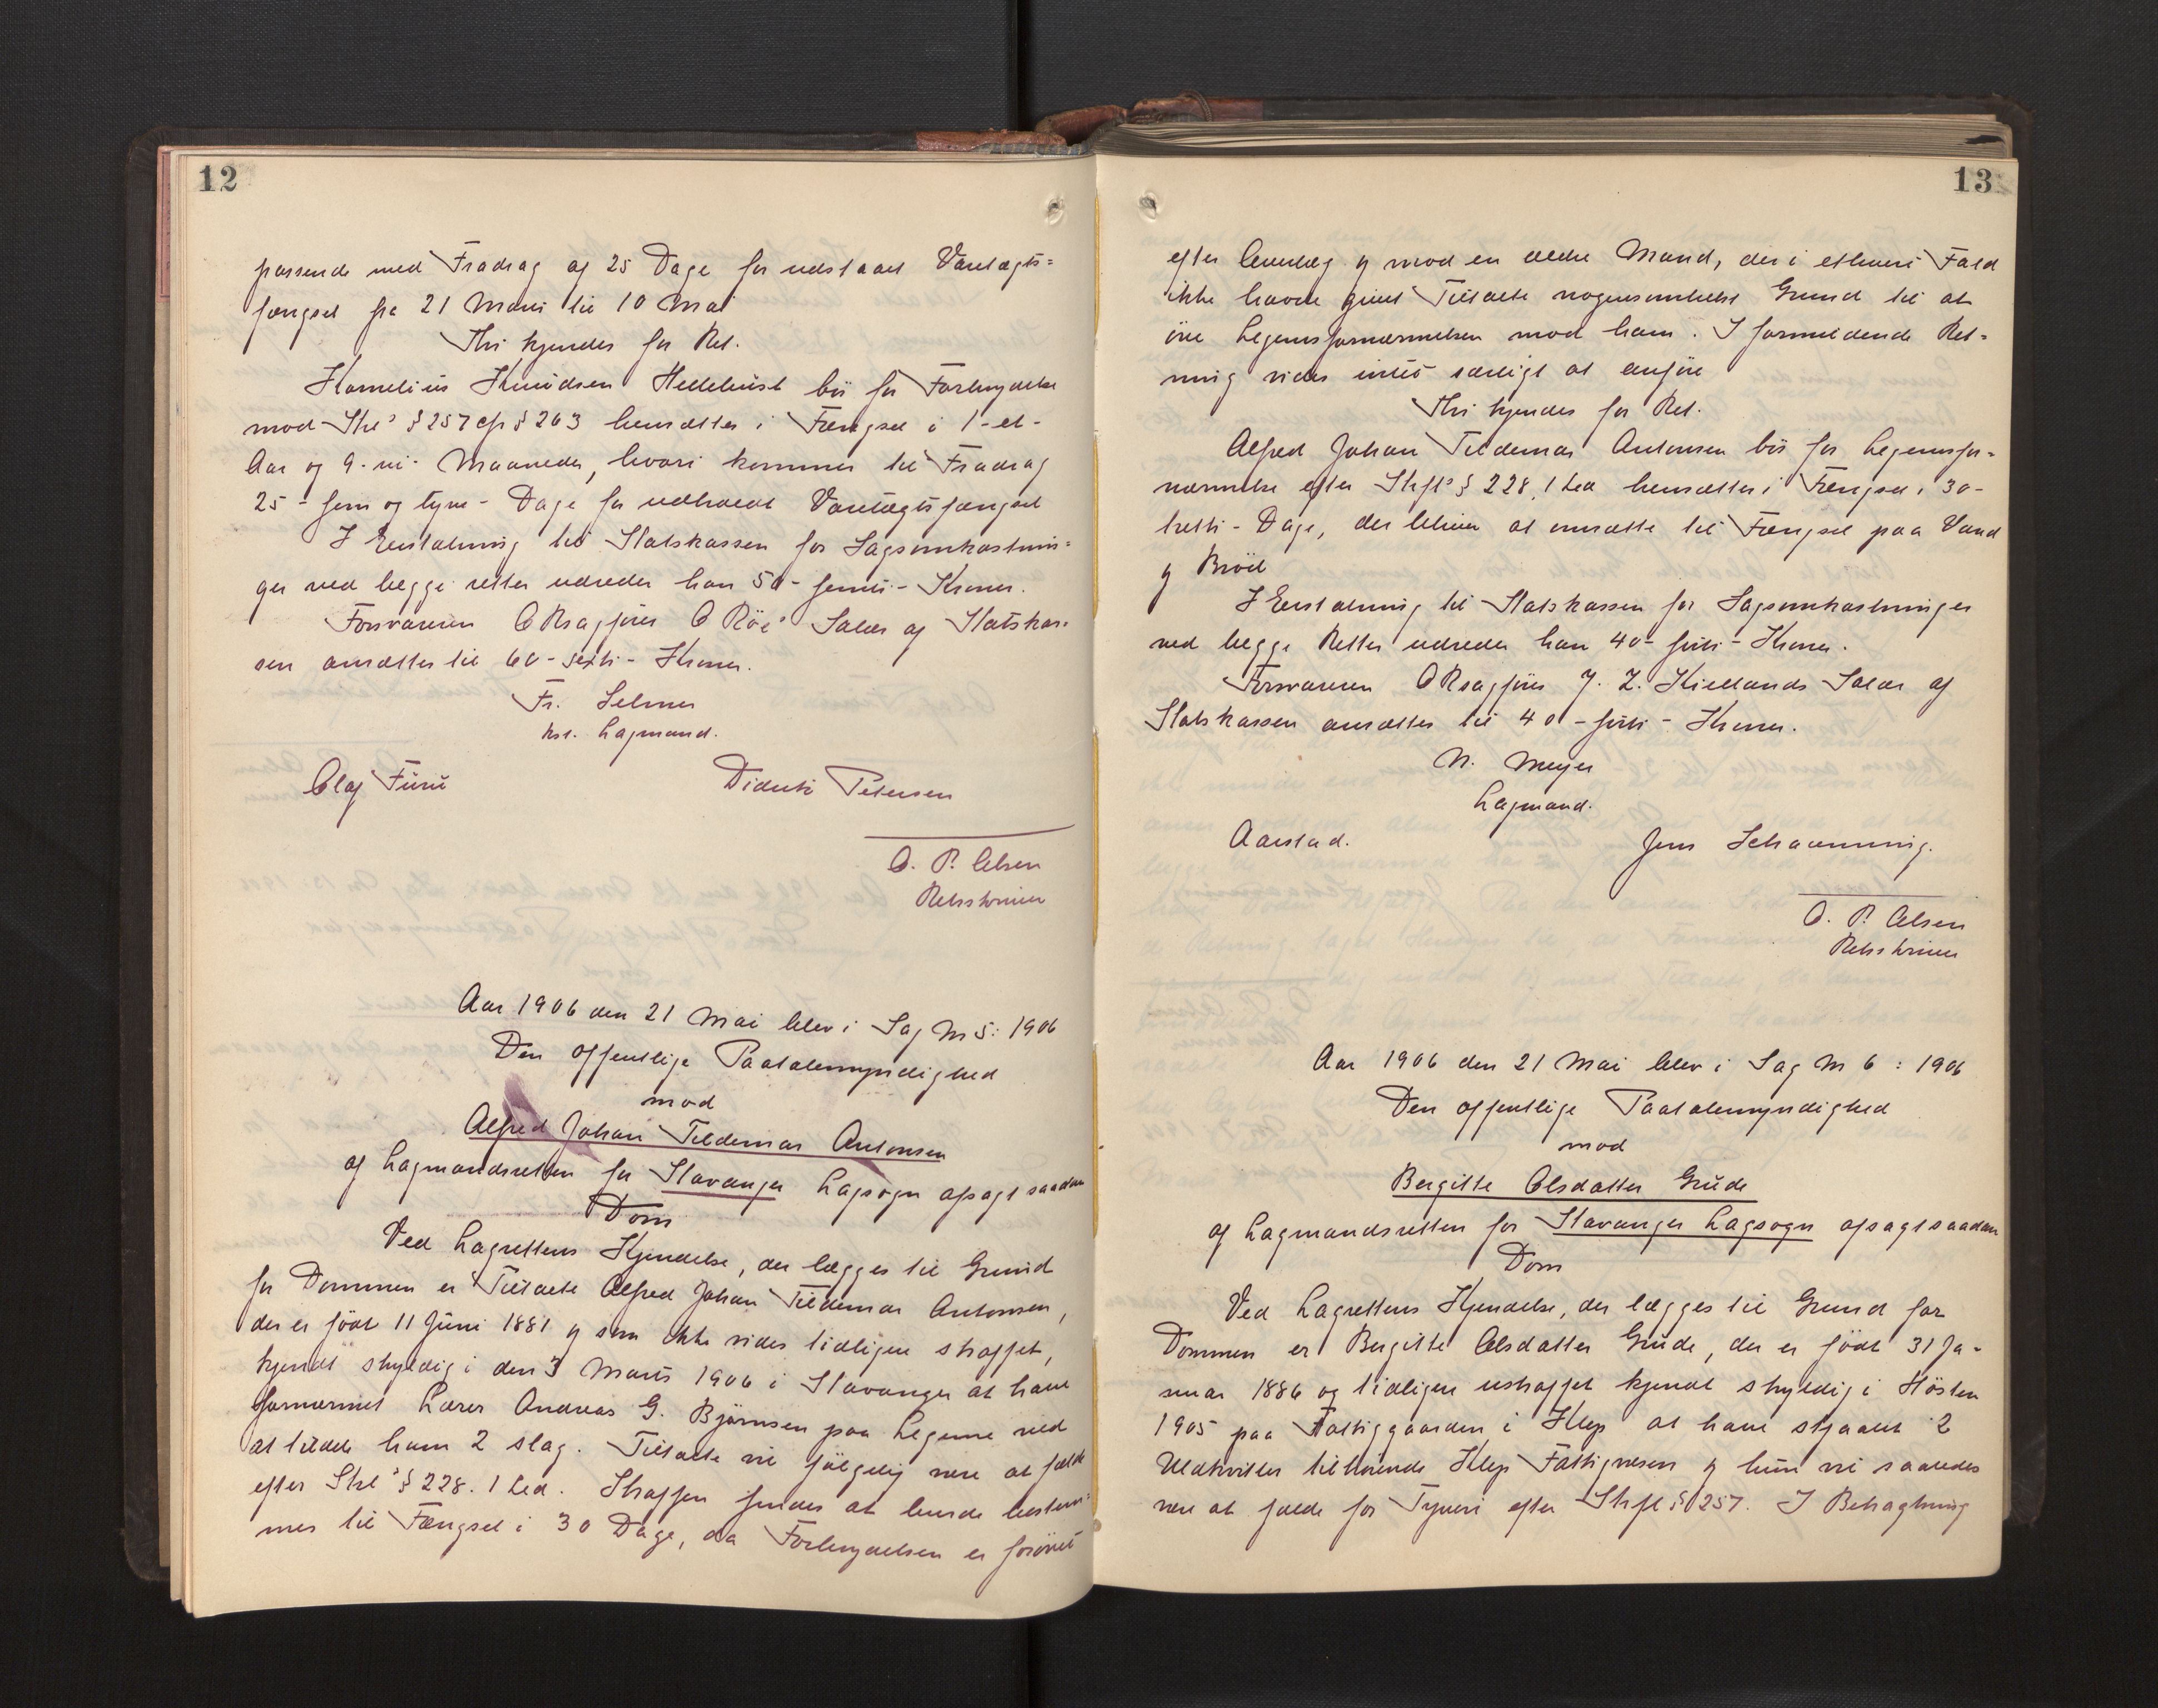 12
passende med Fradrag af 25 Dage for udstaaet Varetægts=
fængsel fra 21 Marts til 10 Mai
Thi kjendes for Ret.
Kornelius Knudsen Hellehust bör for Forbrydelse
mod Strl's § 257 cfr § 263 hensættes i Fængsel i 1-et-
Aar og 9-ni- Maaneder, hvori kommer til Fradrag
25- fem og tyve- Dage for udholdt Varetægtsfængsel
I Erstatning til Statskassen for Sagsomkostnin=
ger ved begge retter udreder han 50- femti- Kroner.
Forsvareren ORsagförer O Röe's Salær af Statskas=
sen ansættes til 60- sexti- Kroner.
Fr. Selmer
kst. Lagmand.
Olaf Furu
Didrik Petersen
O. P. Olsen
Retsskriver
Aar 1906 den 21 Mai blev i Sag No 5: 1906
Den offentlige Paatalemyndighed
mod
Alfred Johan Tildemar Antonsen
af Lagmandsretten for Stavanger Lagsogn afsagt saadan
Dom
Ved Lagrettens Kjendelse, der lægges til Grund
for Dommen er Tiltalte Alfred Johan Tildemar Antonsen,
der er födt 11 Juni 1881 og som ikke vides tidligere straffet,
kjendt skyldig i den 3 Marts 1906 i Stavanger at have
fornærmet Lærer Andreas G. Björnsen paa Legeme ved
at tildele ham 2 slag. Tiltalte vil fölgelig være at fælde
efter Strl's § 228. 1 Led. Straffen findes at burde bestem=
mes til Fængsel i 30 Dage, da Forbrydelsen er forövet
13
efter Overlæg og mod en ældre Mand, der i ethvert Fald
ikke havde givet Tiltalte nogensomhelst Grund til at
öve Legemsfornærmelsen mod ham. I formildende Ret=
ning vides intet særligt at anföre
Thi kjendes for Ret.
Alfred Johan Tildemar Antonsen bör for Legemsfor=
nærmelse efter Strfl's § 228, 1 Led hensættes i Fængsel i 30-
tretti- Dage, der bliver at omsætte til Fængsel paa Vand
og Bröd
I Erstatning til Statskassen for Sagsomkostninger
ved begge Retter udreder han 40- förti- Kroner.
Forsvareren ORsagförer J. Z. Kiellands Salær af
Statskassen ansættes til 40- förti- Kroner.
N. Meyer
Lagmand.
Aarstad.
Jens Schanning.
O. P. Olsen
Retsskriver
Aar 1906 den 21 Mai blev i Sag No 6: 1906
Den offentlige Paatalemyndighed
mod
Bergitte Olsdatter Grude
af Lagmandsretten for Stavanger Lagsogn afsagt saadan
Dom
Ved Lagrettens Kjendelse, der lægges til Grund for
Dommen er Bergitte Olsdatter Grude, der er födt 31 Ja-
nuar 1886 og tidligere ustraffet kjendt skyldig i Hösten
1905 paa Fattiggaarden i Klep at have stjaalet 2
Uldkvitler tilhörende Klep Fattigvæsen og hun vil saaledes
være at fælde for Tyveri efter Strfl § 257. I Betragtning